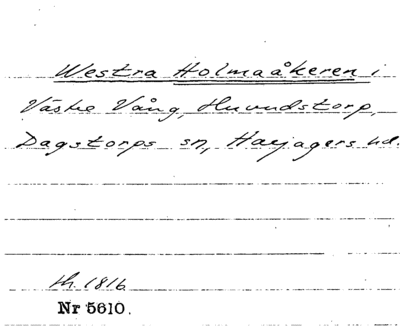 Westra Holmaåkeren i
Västre Vång, Huvudstorp,
Dagstorps sn, Harjagers hd.
th. 1816
Nr 5610.